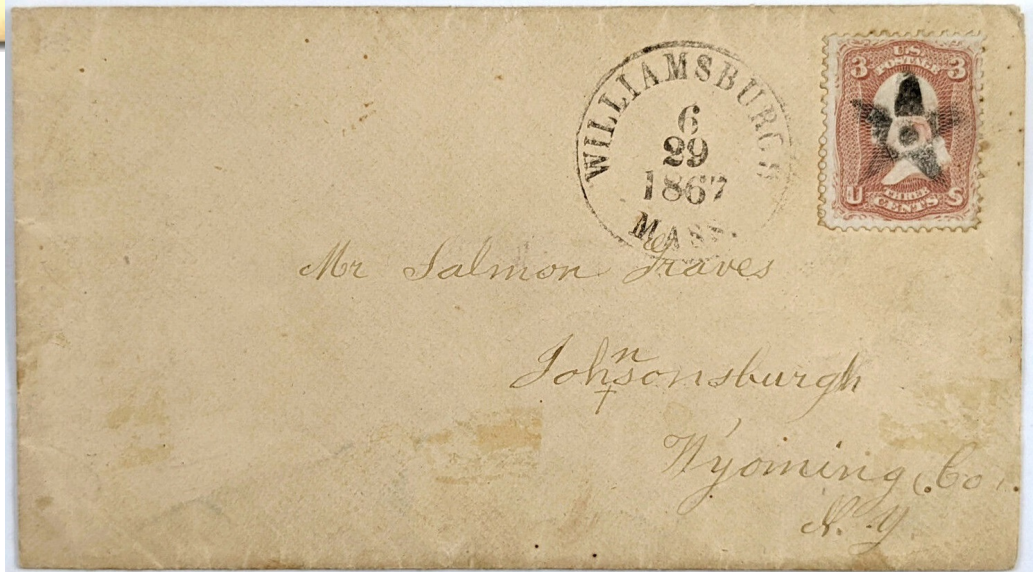 WILLIAMSBURGH
6
29
1867
MASS.
U.S.
POSTAGE
3 3
THREE
U CENTS S
Mr Salmon Graves
Johnsonsburgh
Wyoming Co.
N. Y